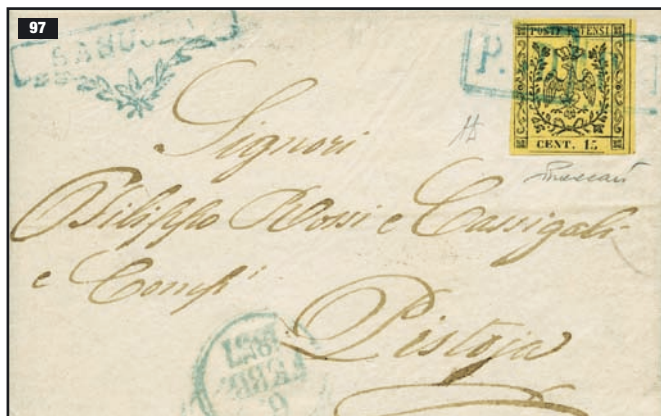 97
SASSUOLO
POSTE ESTENSI
P.D.
CENT. 15
Signori
Filippo Rossi e Cassigoli
e Comp.i
Pistoja
1857
FEBB
9